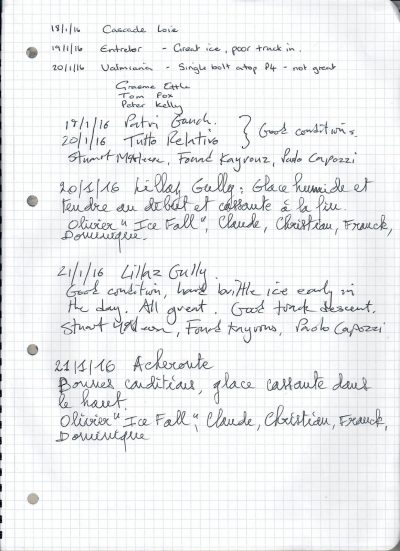 18/1/16 Cascade Loie
19/1/16 Entrelor - Great ice, poor track in.
20/1/16 Valmiana - Single bolt atop P4 - not great
Graeme Ettle
Tom Fox
Peter Kelly
18/1/16 Patri Gauch.
20/1/16 Tutto Relativo } Good conditions.
Stuart, Fouad Kayrouz, Paolo Capozzi
20/1/16 Lillaz Gully: Glace humide et
tendre au début et cassante à la fin.
Olivier "Ice Fall", Claude, Christian, Franck,
Dominique.
21/1/16 Lillaz Gully.
Good condition, hard brittle ice early in
the day. All great. Good track descent.
Stuart, Fouad Kayrouz, Paolo Capozzi
21/1/16 Acheronte
Bonnes conditions, glace cassante dans
le haut.
Olivier "Ice Fall", Claude, Christian, Franck,
Dominique